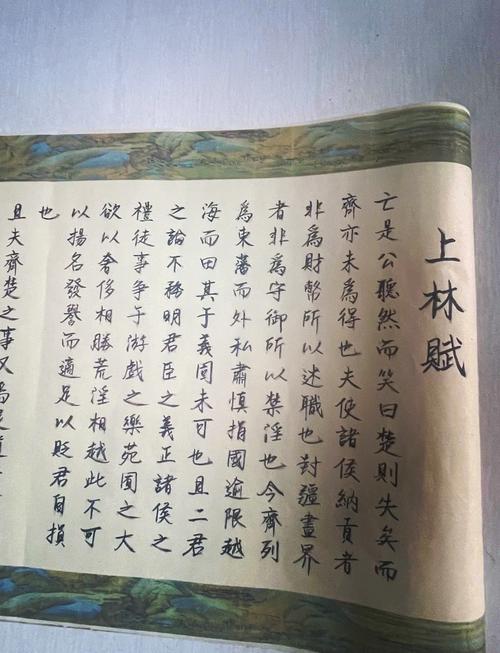 上林賦
亡是公聽然而笑曰楚則失矣而
齊亦未為得也夫使諸侯納貢者
非為財幣所以述職也封疆畫界
者非為守御所以禁淫也今齊列
為東藩而外私肅慎捐國逾限越
海而田其于義固未可也且二君
之論不務明君臣之義正諸侯之
禮徒事爭于游戲之樂苑囿之大
欲以奢侈相勝荒淫相越此不可
以揚名發譽而適足以貶君自損
也
且夫齊楚之事又焉足道